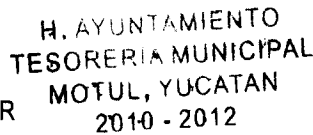 H. AYUNTAMIENTO
TESORERIA MUNICIPAL
MOTUL, YUCATAN
R
2010 - 2012